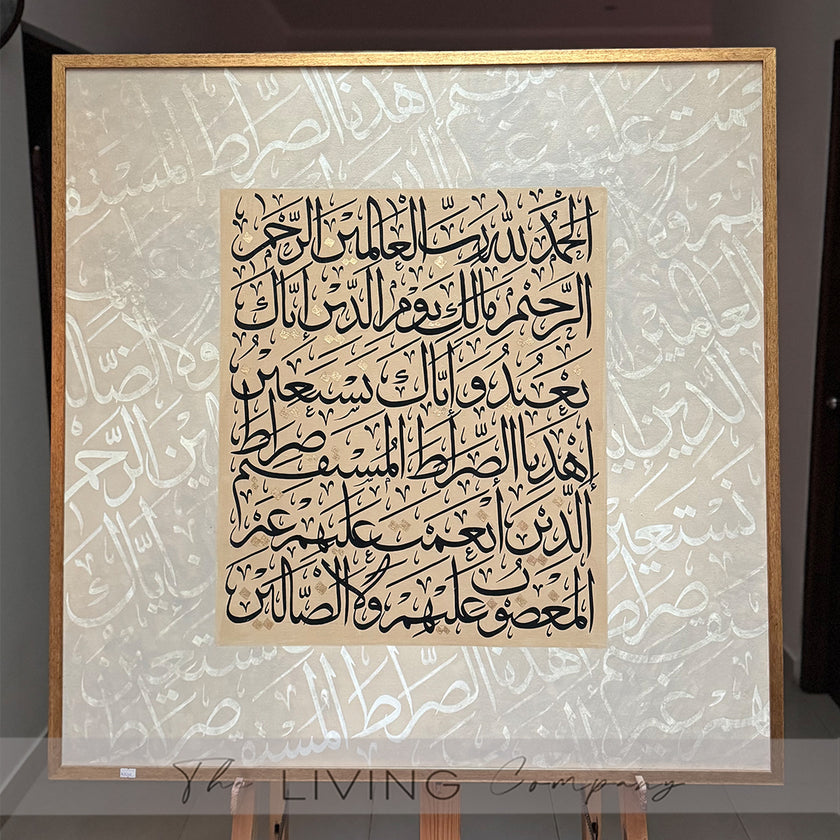 الحمد لله رب العالمين الرحمن
الرحيم مالك يوم الدين إياك
نعبد وإياك نستعين
إهدنا الصراط المستقيم صراط
الذين أنعمت عليهم غير
المغضوب عليهم ولا الضالين
The LIVING Company